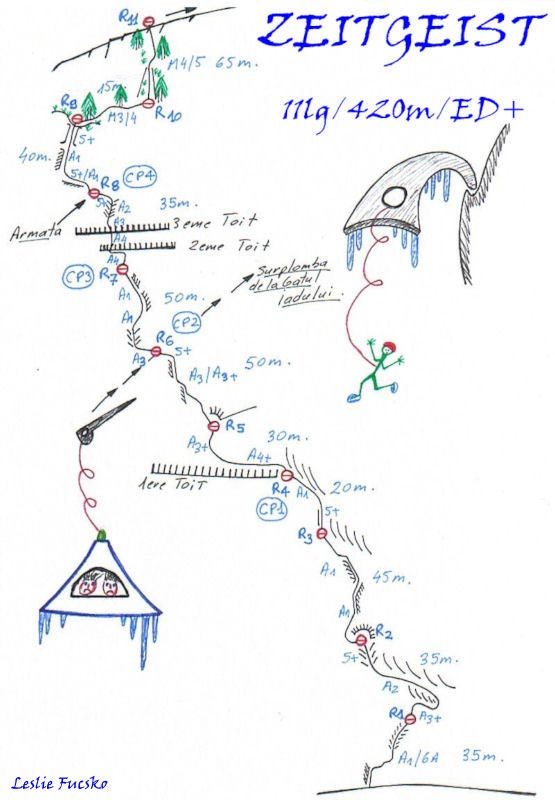 ZEITGEIST
111g/420m/ED+
R11
M4/5 65m.
15m
R9
M3/4
R10
5+
40m.
A1
5+/A1
R8
CP4
5+
A2
35m.
Armata
A3
3eme Toit
A4
2eme Toit
A4
CP3
R7
A1
50m.
Surplomba
de la Gatul
Iadului.
A1
CP2
R6
5+
A3
50m.
A3/A3+
R5
A3+
30m.
A4+
1ere Toit
R4
A1
20m.
CP1
5+
R3
A1
45m.
A1
R2
5+
35m.
A2
R1
A3+
A1/6A
35m.
Leslie Fucsko